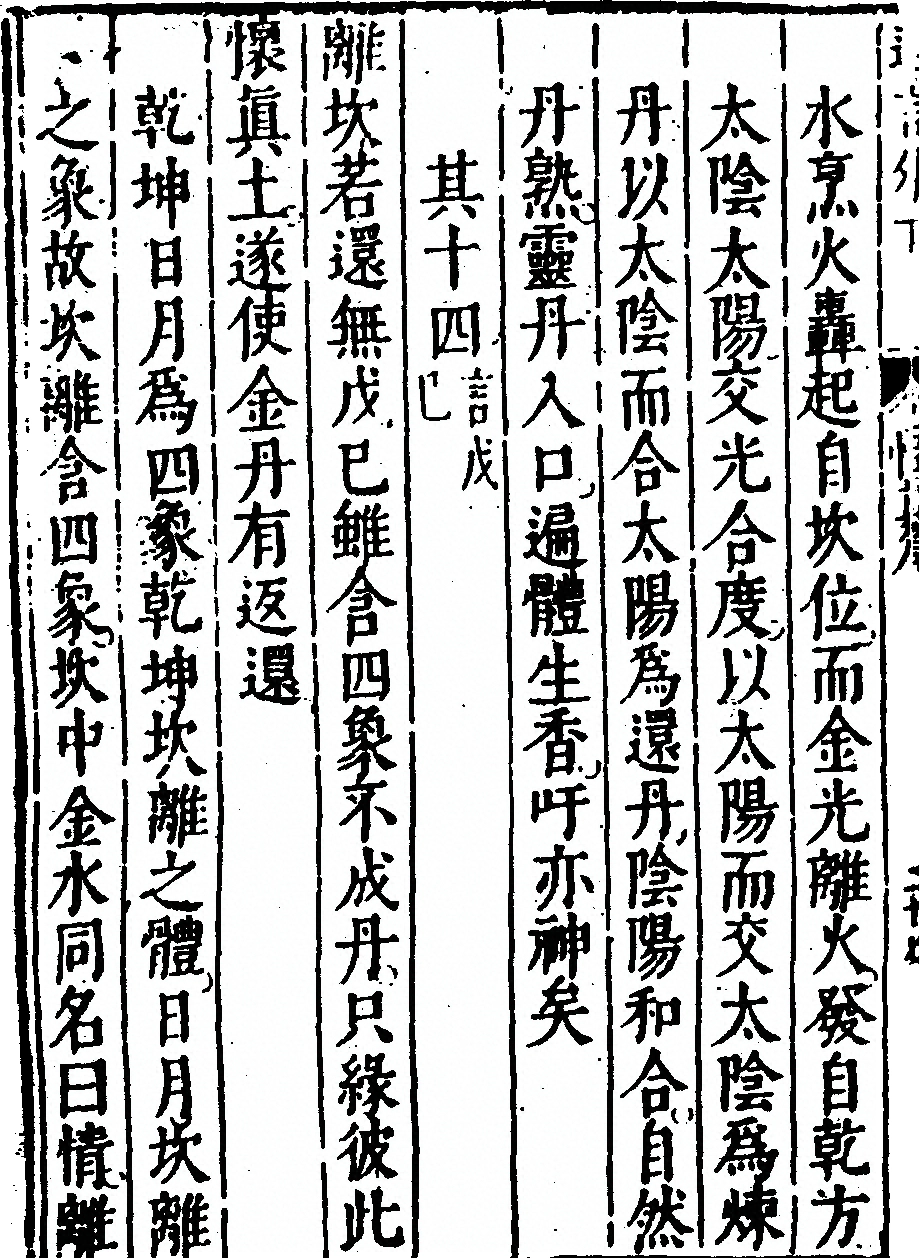 水烹火轟起自坎位而金光離火發自乾方
太陰太陽交光合度以太陽而交太陰爲煉
丹以太陰而合太陽爲還丹陰陽和合自然
丹熟靈丹入口遍體生香吁亦神矣
其十四言戊已
離坎若還無戊已雖含四象不成丹只緣彼此
懷眞土遂使金丹有返還
乾坤日月爲四象乾坤坎離之體日月坎離
之象故坎離含四象坎中金水同名曰情離